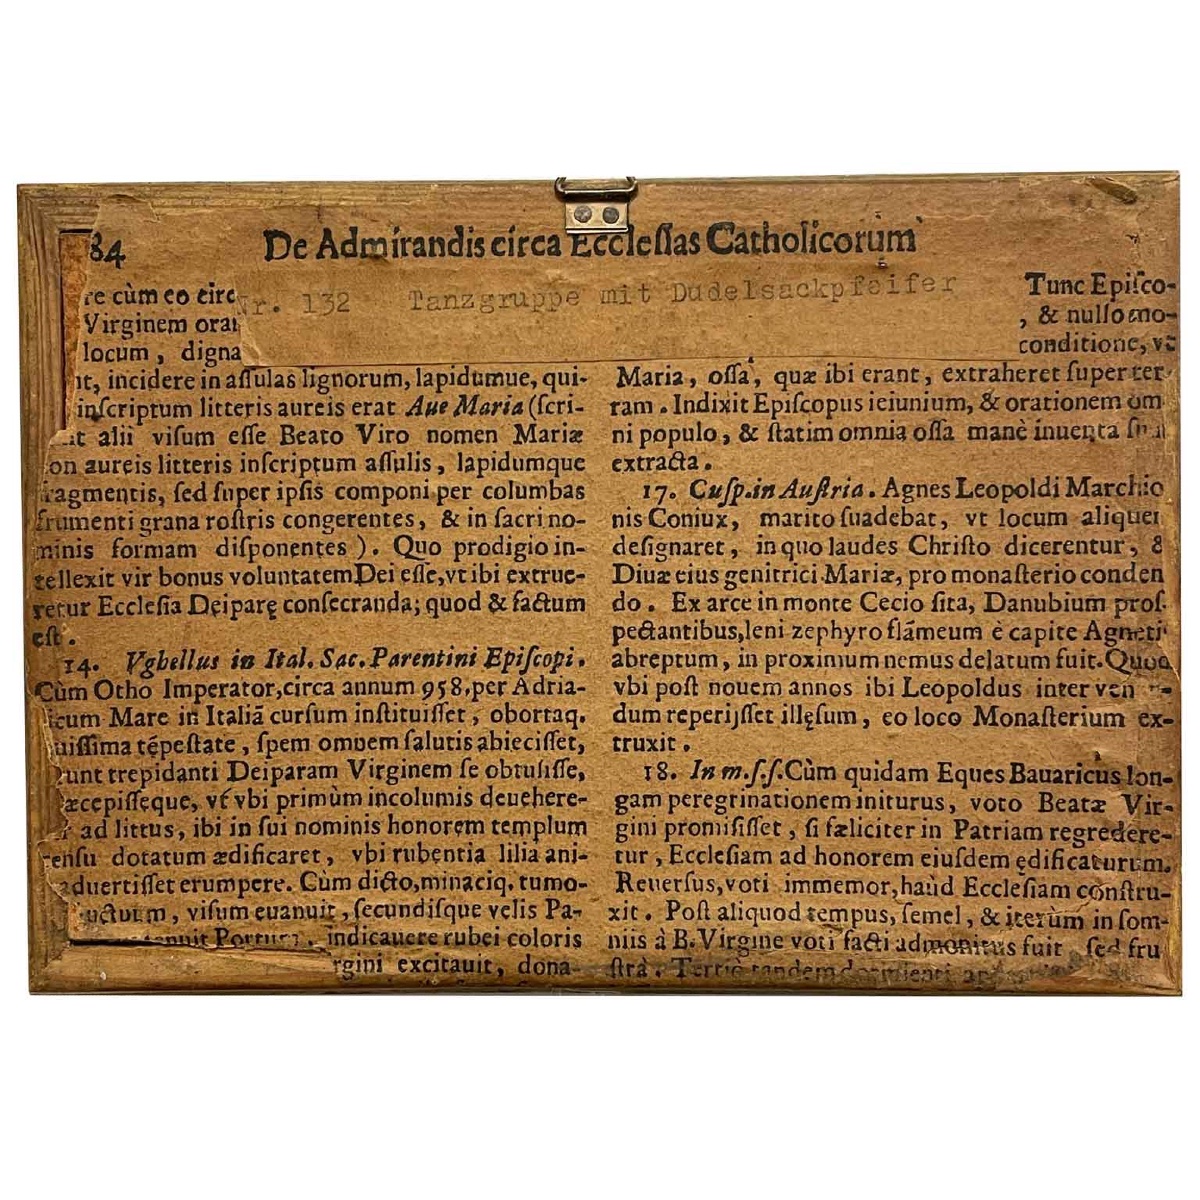 84 De Admirandis circa Ecclesias Catholicorum
Nr. 132 Tanzgruppe mit Dudelsackpfeifer
re cùm eo circ
Virginem orar
locum, digna
it, incidere in aſſulas lignorum, lapidumue, qui-
inſcriptum litteris aureis erat Aue Maria (ſcri-
alii viſum eſſe Beato Viro nomen Mariæ
on aureis litteris inſcriptum aſſulis, lapidumque
fragmentis, ſed ſuper ipſis componi per columbas
frumenti grana roſtris congerentes, & in ſacri no-
minis formam diſponentes). Quo prodigio in-
tellexit vir bonus voluntatem Dei eſſe, vt ibi extrue-
retur Eccleſia Deiparę conſecranda; quod & factum
eſt.
14. Vghellus in Ital. Sac. Parentini Epiſcopi.
Cùm Otho Imperator, circa annum 958. per Adria-
ticum Mare in Italiã curſum inſtituiſſet, obortaq.
uiſſima tẽpeſtate, ſpem omnem ſalutis abieciſſet,
runt trepidanti Deiparam Virginem ſe obtuliſſe,
æcepiſſeque, vt vbi primùm incolumis deuehere-
ad littus, ibi in ſui nominis honorem templum
cenſu dotatum ædificaret, vbi rubentia lilia ani-
aduertiſſet erumpere. Cùm dicto, minaciq. tumo-
uctuum, viſum euanuit, ſecundiſque velis Pa-
tenuit Portum. indicauere rubei coloris
rgini excitauit, dona-
Tunc Epiſco-
, & nullo mo-
conditione, vt
Maria, oſſa, quæ ibi erant, extraheret ſuper ter-
ram. Indixit Epiſcopus ieiunium, & orationem om
ni populo, & ſtatim omnia oſſa manè inuenta ſunt
extracta.
17. Cuſp. in Auſtria. Agnes Leopoldi Marchio
nis Coniux, marito ſuadebat, vt locum aliquem
deſignaret, in quo laudes Chriſto dicerentur, &
Diuæ eius genitrici Mariæ, pro monaſterio conden
do. Ex arce in monte Cecio ſita, Danubium proſ-
pectantibus, leni zephyro flãmeum è capite Agneti
abreptum, in proximum nemus delatum fuit. Quod
vbi poſt nouem annos ibi Leopoldus inter ven
dum reperijſſet illęſum, eo loco Monaſterium ex-
truxit.
18. In m.ſ.ſ. Cùm quidam Eques Bauaricus lon-
gam peregrinationem initurus, voto Beatæ Vir-
gini promiſiſſet, ſi fæliciter in Patriam regredere-
tur, Eccleſiam ad honorem eiuſdem ędificaturum.
Reuerſus, voti immemor, haùd Eccleſiam conſtru-
xit. Poſt aliquod tempus, ſemel, & iterùm in ſom-
niis à B. Virgine voti facti admonitus fuit, ſed fru
ſtrà. Tertiò tandem dormienti